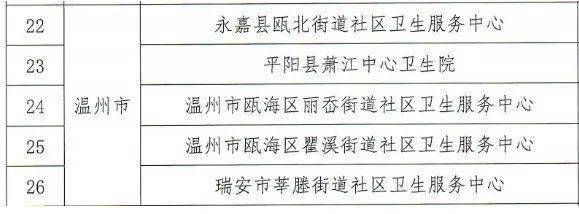 22 永嘉县瓯北街道社区卫生服务中心
23 平阳县萧江中心卫生院
24 温州市 温州市瓯海区丽岙街道社区卫生服务中心
25 温州市瓯海区瞿溪街道社区卫生服务中心
26 瑞安市莘塍街道社区卫生服务中心